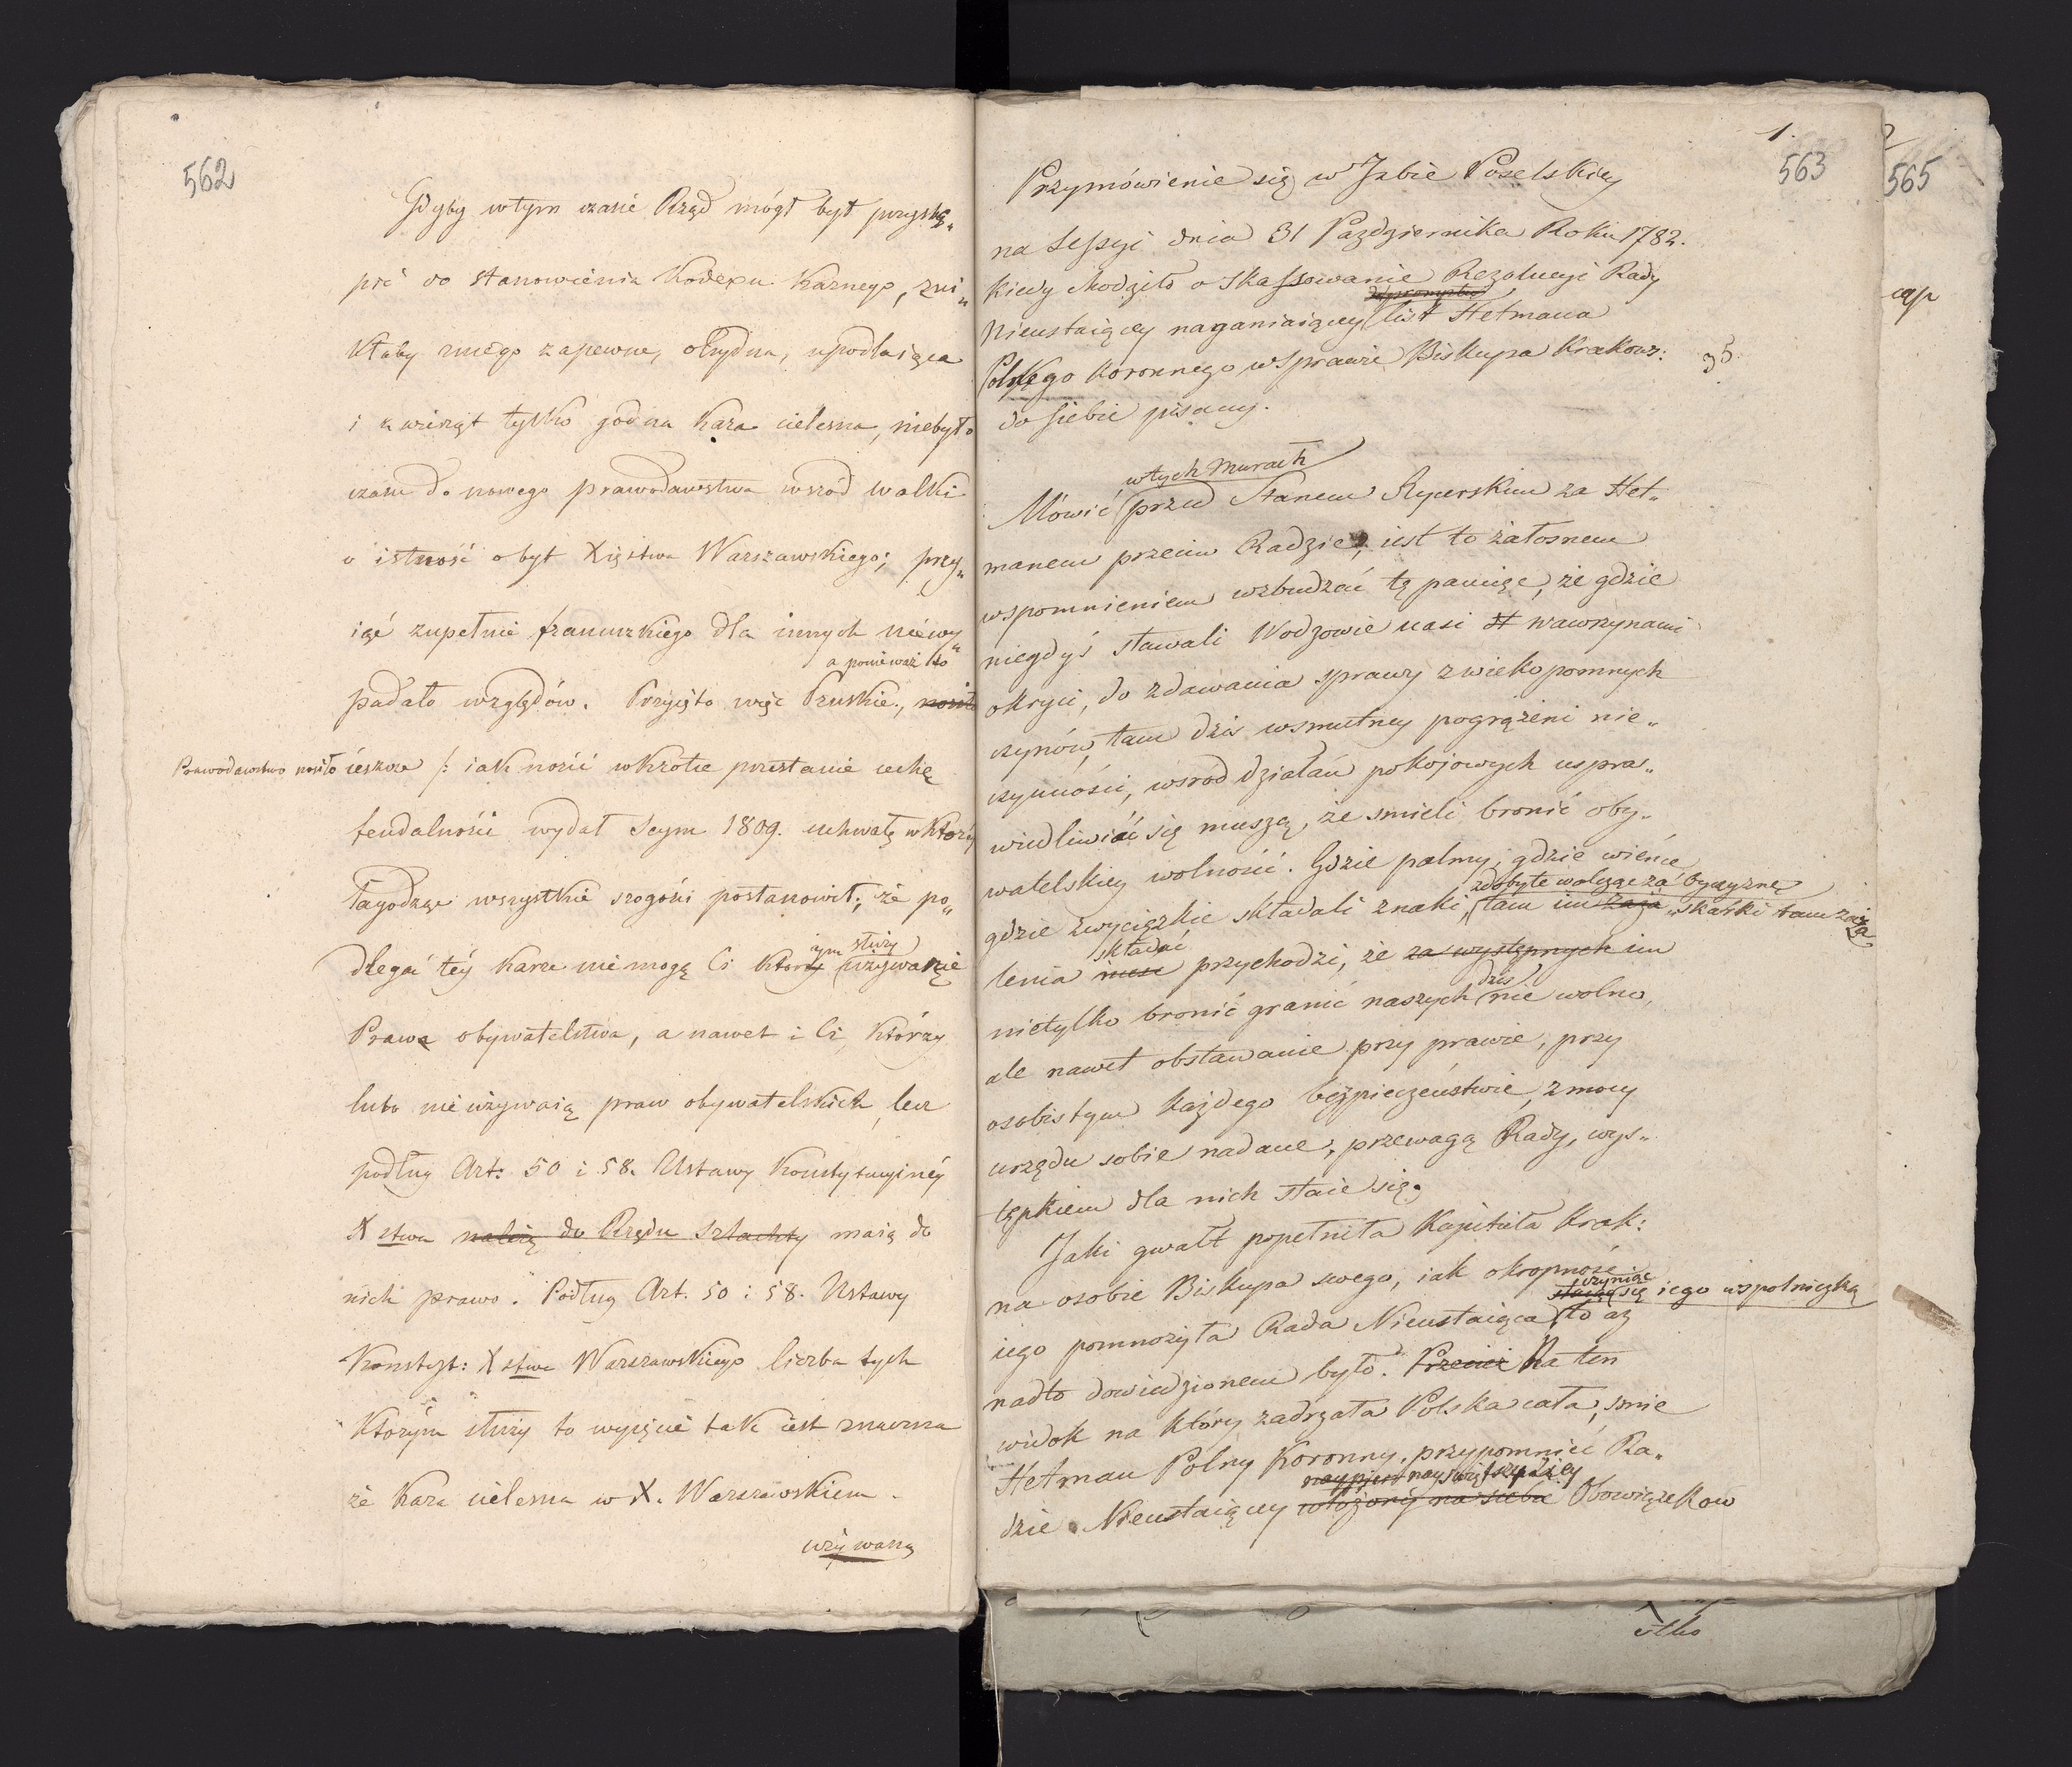 562
Gdyby w tym czasie Rząd mógł był przystą„
pić do stanowienia Kodexu Karnego, zni„
kłaby z niego zapewne, ohydna, upodlaiąca
i zwierząt tylko godna kara cielesna, niebyło
czasu do nowego prawodawstwa wsród walki
o istność o byt Xięstwa Warszawskiego; przy„
iąć zupełnie francuzkiego dla innych niewy„
a ponieważ to
padało względów. Przyięto więc Pruskie, nosiło
Prawodawstwo nosiło ieszcze /: iak nosić wkrotce przestanie cechę
feudalności wydał Seym 1809. uchwałę w którey
łagodząc wszystkie srogości postanowił; że po„
ym służy
dlegać téy karze nie mogą Ci którzy używanie
Prawa obywatelstwa, a nawet i Ci, którzy
lubo nie używaią praw obywatelskich, lecz
podług Art: 50 i 58. Ustawy Konstytucyinéy
X stwa należą do Rzędu szlachty maią do
nich prawo. Podług Art. 50 i 58. Ustawy
Konstyt: X stwa Warszawskiego liczba tych
którym służy to wyięcie tak iest znaczna
że kara cielesna w X. Warszawskiem
używaną
1.
563
565
Przymówienie się w Izbie Poselskiey
na Sessyi dnia 31 Pazdziernika Roku 1782.
kiedy chodziło o skassowanie Rezolucyi Rady
Nieustaiącey naganiaiącey list Hetmana
Polnego Koronnego w sprawie Biskupa Krakows:
35
do siebie pisany.
w tych murach
Mówić przed Stanem Rycerskim za Het„
manem przeciw Radzie, iest to żałosnem
wspomnieniem wzbudzać tę pamięć, że gdzie
niegdyś stawali Wodzowie nasi wawrzynami
okryci, do zdawania sprawy z wiekopomnych
czynów, tam dziś w smutney pogrążeni nie„
czynności, wsrod działań pokojowych uspra„
wiedliwiać się muszą, że smieli bronić oby„
watelskiey wolności. Gdzie palmy, gdzie wieńce
zdobyte walcząc za oyczyznę
gdzie zwycięzkie składali znaki, tam im zaża „skarki tam zaża
składać
lenia niesc przychodzi, że za występnych im
dziś
nietylko bronić granic naszych nie wolno,
ale nawet obstawanie przy prawie, przy
osobistym każdego bezpieczeństwie, z mocy
urzędu sobie nadane, przewagą Rady, wys„
tępkiem dla nich staie się.
Jaki gwałt popełniła Kapituła Krak:
na osobie Biskupa swego, iak okropność
czyniąc
staiąc się iego wspolniczką
iego pomnożyła Rada Nieustaiąca, to aż
nadto dowiedzionem było. Przecież Na ten
widok na który zadrżała Polska cała, smie
Hetman Polny Koronny, przypomnieć Ra„
nayswiętszych iey
dzie Nieustaiącey włożony na siebie Obowiązkow